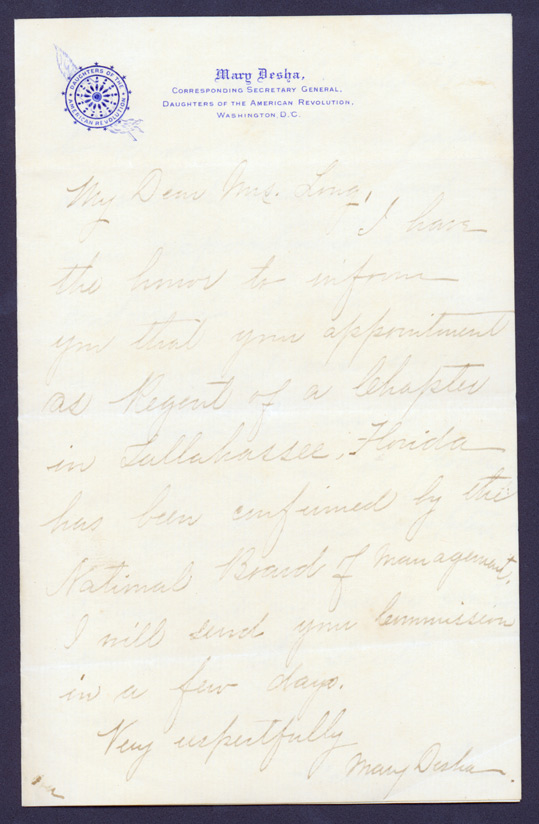 DAUGHTERS OF THE
AMERICAN REVOLUTION
Mary Desha,
CORRESPONDING SECRETARY GENERAL,
DAUGHTERS OF THE AMERICAN REVOLUTION,
WASHINGTON, D.C.
My Dear Mrs. Long,
I have
the honor to inform
you that your appointment
as Regent of a Chapter
in Tallahassee, Florida
has been confirmed by the
National Board of Management,
I will send your Commission
in a few days.
Very respectfully
Mary Desha.